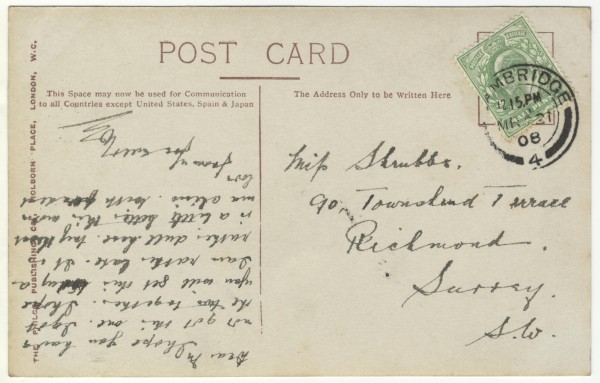 POST CARD
This Space may now be used for Communication
to all Countries except United States, Spain & Japan
The Address Only to be Written Here
MBRIDGE
12.15 PM
MR 21
08
4
Miss Shrubbs.
90. Townshend Terrace
Richmond.
Surrey.
S.W.
Dear M
I hope you have
not got this one. I got
the two together. I hope
you will get this today
I am rather late. It is
rather dull here today
is a little better this
with
love
from
THE PUBLISHING CO. HOLBORN PLACE, LONDON, W.C.